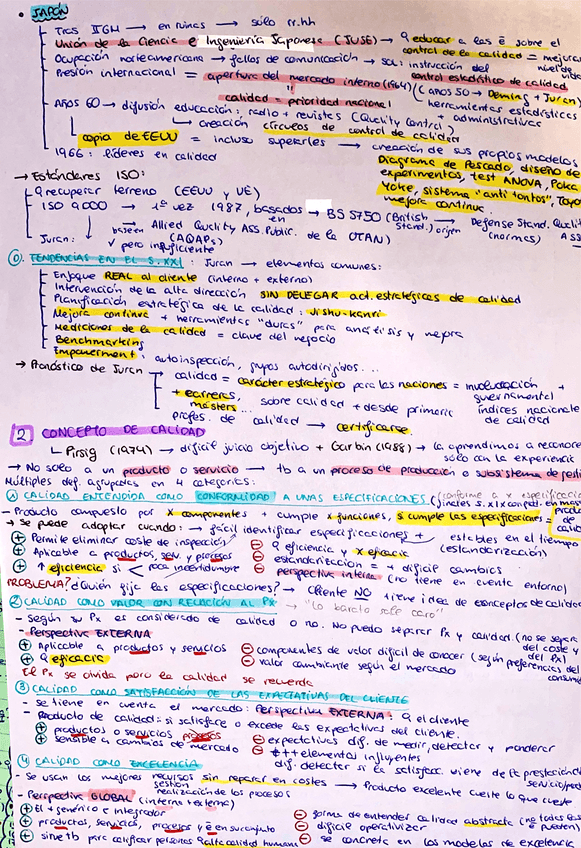 • JAPÓN
Tras IIGM → en ruinas → sólo rr.hh
Unión de la Ciencia e Ingeniería Japonese (JUSE) → educar a las e sobre el control de la calidad = mejorar nivel de vida
Ocupación norteamericana → fallos de comunicación → sol: instrucción del control estadístico de calidad
Presión internacional = apertura del mercado interno (1964) (años 50 → Deming + Juran)
calidad = prioridad nacional
herramientas estadísticas + administrativas
Años 60 → difusión educación: radio + revistas (Quality Control)
→ creación círculos de control de calidad
copia de EEUU = incluso superarles → creación de sus propios modelos
1966: líderes en calidad
Diagrama de Pescado, diseño de experimentos, test ANOVA, Poka Yoke, sistema "anti tontos",
mejora continua
→ Estándares ISO:
recuperar terreno (EEUU y UE)
ISO 9000 → 1ª vez 1987, basados en → BS 5750 (British Stand.) origen Defense Stand. (normas)
basa en Allied Quality Ass. Public. de la OTAN)
(AQAPs)
Juran: pero insuficiente
0. TENDENCIAS EN EL S.XXI: Juran → elementos comunes:
Enfoque REAL al cliente (interno + externo)
Intervención de la alta dirección SIN DELEGAR act. estratégicas de calidad
Planificación estratégica de la calidad: Jishu-kanri
Mejora continua + herramientas "duras" para análisis y mejora
Mediciones de la calidad = clave del negocio
Benchmarking
Empowerment: autoinspección, grupos autodirigidos...
→ Pronóstico de Juran
calidad = carácter estratégico para las naciones = involucración guvernamental +
+ carreras, másters... sobre calidad + desde primaria índices nacionales de calidad
profes. de calidad → certificarse.
2 CONCEPTO DE CALIDAD
Pirsig (1974) → difícil juicio objetivo + Garbin (1988) → la aprendimos a reconocer sólo con la experiencia
→ No solo a un producto o servicio → tb a un proceso de producción o subsistema de
Múltiples def. agrupadas en 4 categorías:
1 CALIDAD ENTENDIDA COMO CONFORMIDAD A UNAS ESPECIFICACIONES (conforme a x
- Producto compuesto por x componentes + cumple x funciones, si cumple las especificaciones =
→ Se puede adoptar cuando: → fácil identificar especificaciones + estables en el tiempo
+ Permite eliminar coste de inspección
- eficiencia y x eficacia (estandarización)
+ Aplicable a productos, serv. y procesos
- estandarización = + difícil cambios
+ ↑ eficiencia si < poca incertidumbre
- perspectiva interna (no tiene en cuenta entorno)
PROBLEMA? ¿Quién fija las especificaciones? → Cliente NO + tiene idea de conceptos de calidad
2 CALIDAD COMO VALOR CON RELACIÓN AL PX → "lo barato sale caro"
- Según su Px es considerado de calidad o no. No puedo separar Px y calidad. (no se separa del coste y del Px)
- Perspectiva EXTERNA
+ Aplicable a productos y servicios
- componentes de valor difícil de conocer (según preferencias del
+ eficacia
- valor cambiante según el mercado
El Px se olvida pero la calidad se recuerda
3 CALIDAD COMO SATISFACCIÓN DE LAS EXPECTATIVAS DEL CLIENTE
- se tiene en cuenta el mercado: Perspectiva EXTERNA: el cliente
- Producto de calidad: si satisface o excede las expectativas del cliente.
+ productos o servicios procesos
- expectativas dif. de medir, detectar y ponderar
+ sensible a cambios de mercado
- elementos influyentes
dif. detectar si la satisfacc. viene de la prestación del
4 CALIDAD COMO EXCELENCIA
- Se usan los mejores recursos gestión realización de los procesos sin reparar en costes → Producto excelente cueste lo que cueste
- Perspectiva GLOBAL (interna + externa)
+ El + genérico e integrador
- forma de entender calidad abstracta (no todas las e pueden)
+ productos, servicios, procesos y e en su conjunto
- difícil operativizar
+ sirve tb para calificar personas alta calidad humana
- se concreta en los modelos de excelencia